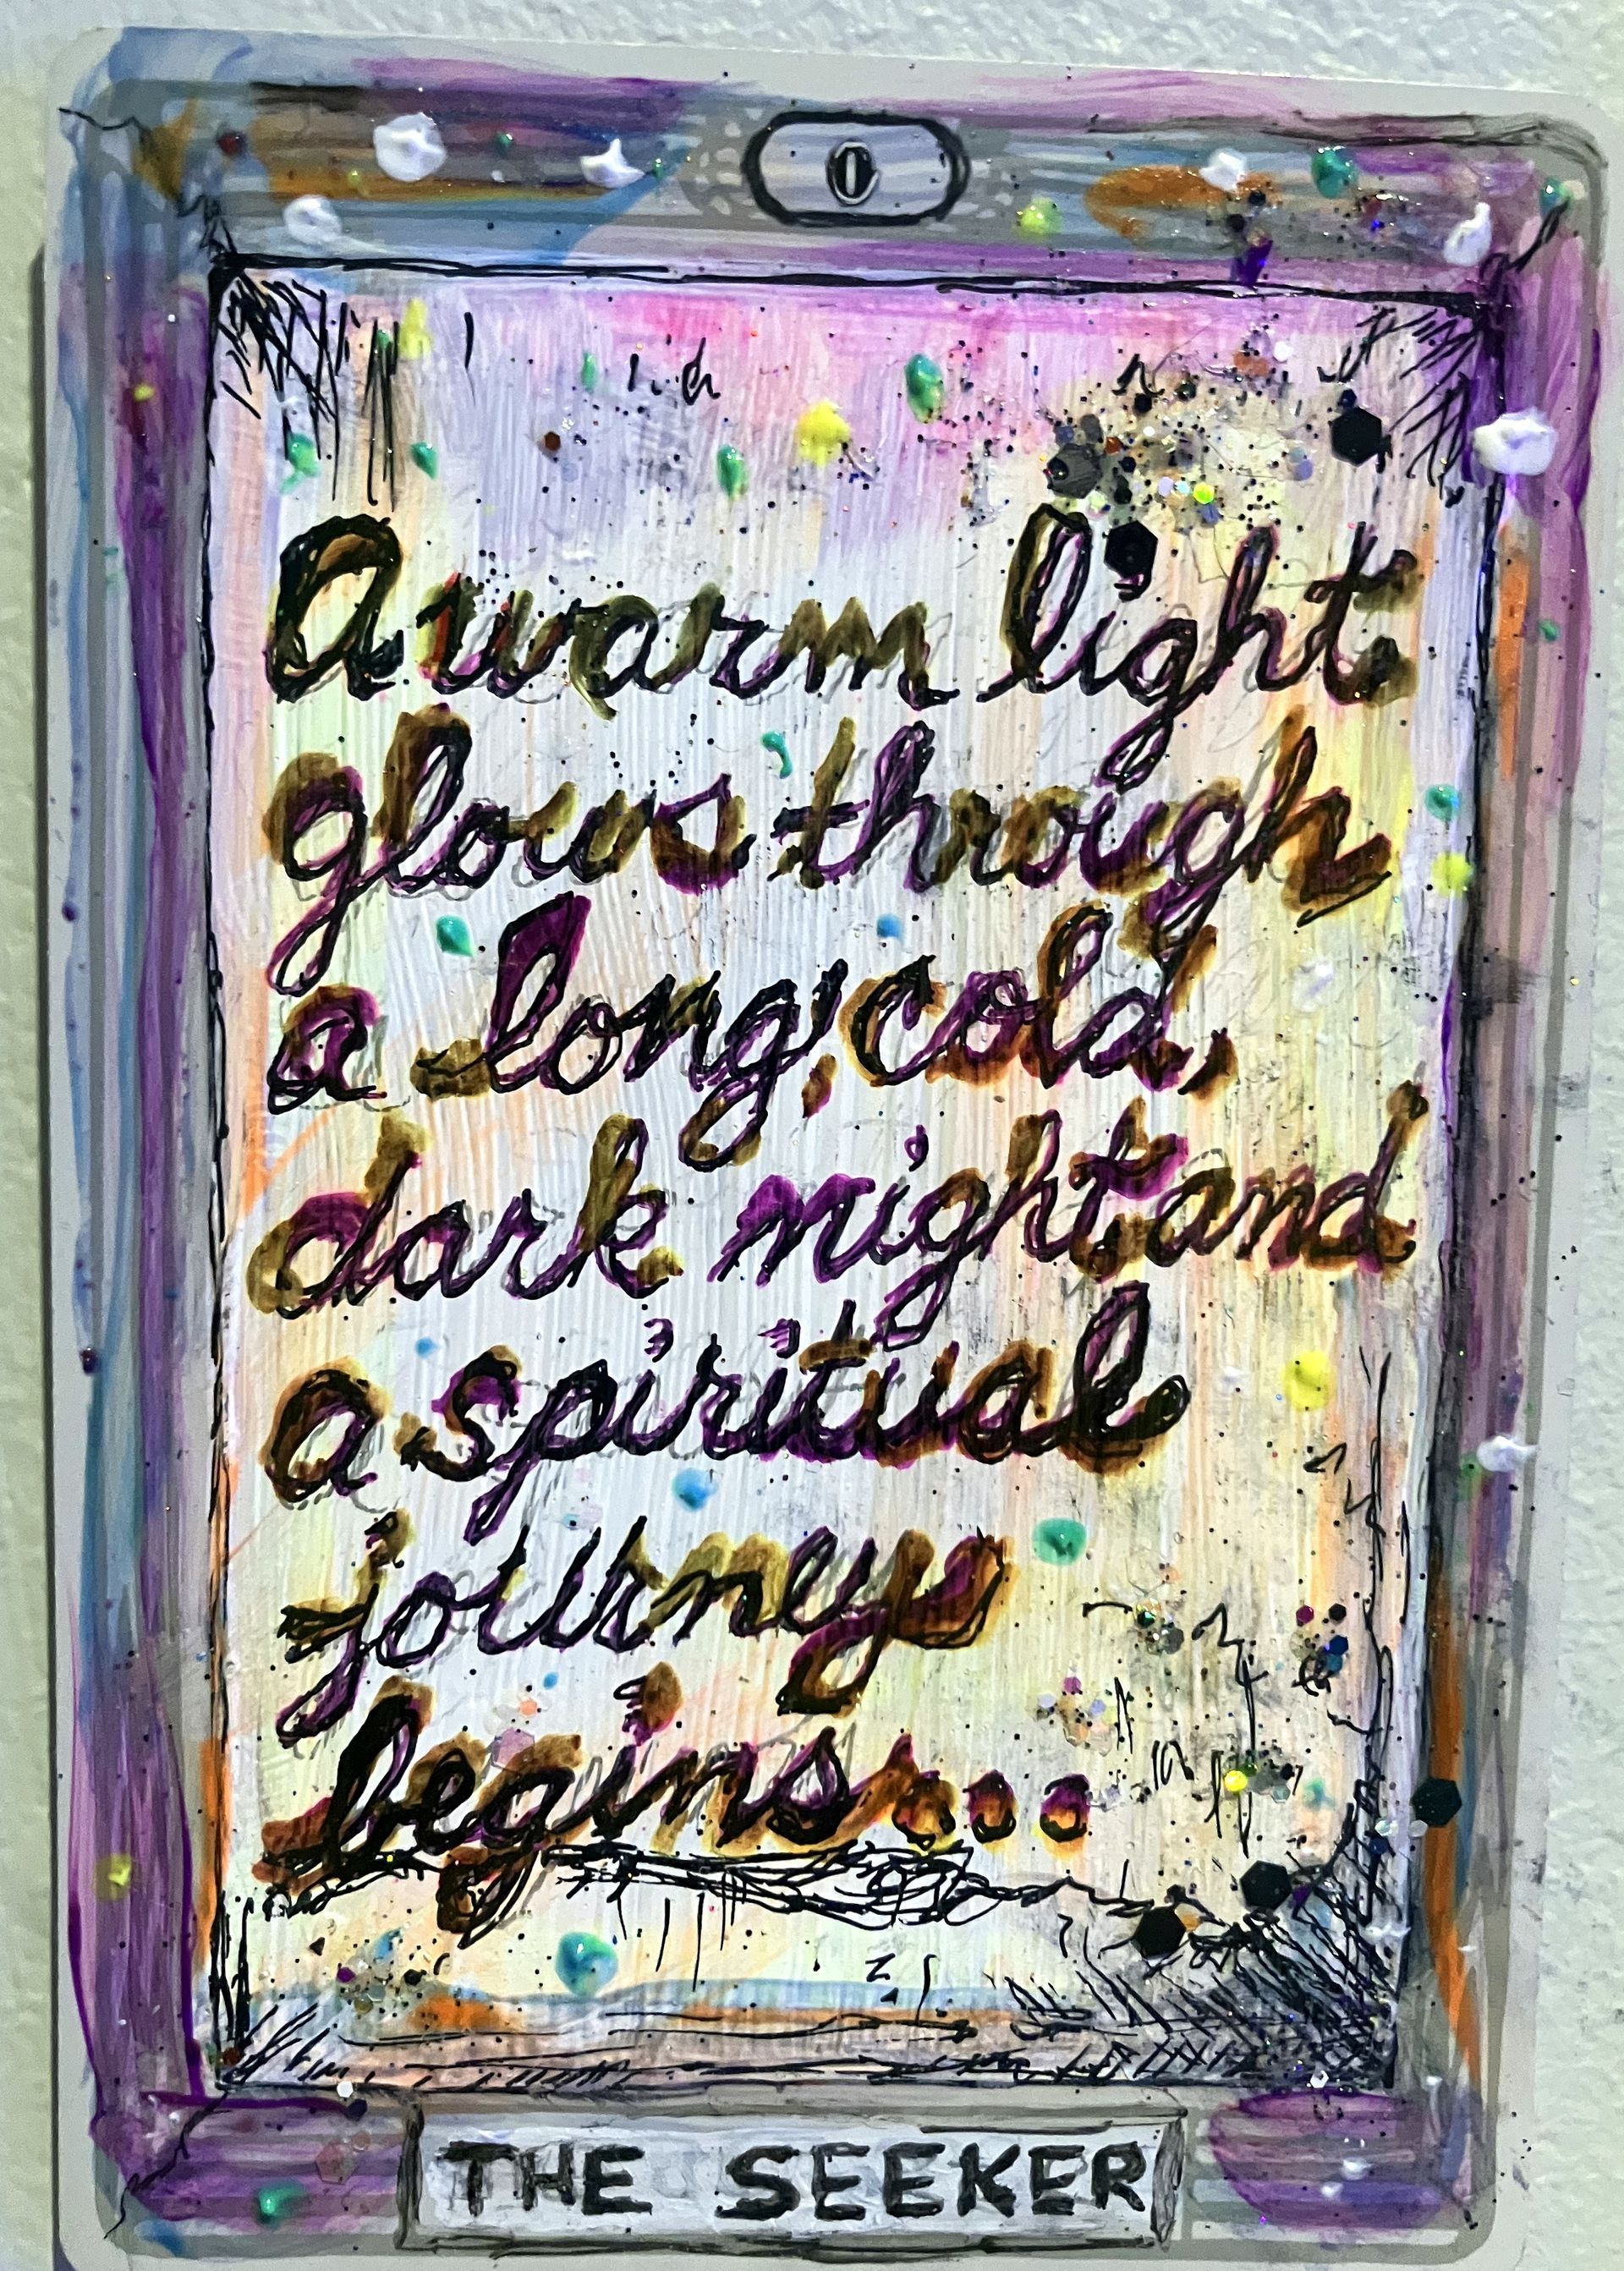 0
A warm light
glows through
a long, cold,
dark night and
a spiritual
journey
begins...
THE SEEKER